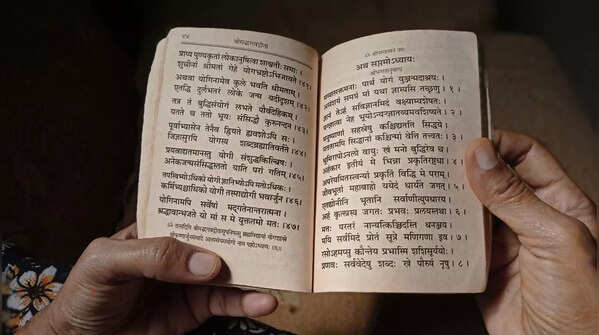 श्रीमद्भगवद्गीता
प्राप्य पुण्यकृतां लोकानुषित्वा शाश्वतीः समाः ।
शुचीनां श्रीमतां गेहे योगभ्रष्टोऽभिजायते ।४१।
अथवा योगिनामेव कुले भवति धीमताम् ।
एतद्धि दुर्लभतरं लोके जन्म यदीदृशम् ।४२।
तत्र तं बुद्धिसंयोगं लभते पौर्वदेहिकम् ।
यतते च ततो भूयः संसिद्धौ कुरुनन्दन ।४३।
पूर्वाभ्यासेन तेनैव ह्रियते ह्यवशोऽपि सः ।
जिज्ञासुरपि योगस्य शब्दब्रह्मातिवर्तते ।४४।
प्रयत्नाद्यतमानस्तु योगी संशुद्धकिल्बिषः ।
अनेकजन्मसंसिद्धस्ततो याति परां गतिम् ।४५।
तपस्विभ्योऽधिको योगी ज्ञानिभ्योऽपि मतोऽधिकः ।
कर्मिभ्यश्चाधिको योगी तस्माद्योगी भवार्जुन ।४६।
योगिनामपि सर्वेषां मद्गतेनान्तरात्मना ।
श्रद्धावान्भजते यो मां स मे युक्ततमो मतः ।४७।
ॐ तत्सदिति श्रीमद्भगवद्गीतासूपनिषत्सु ब्रह्मविद्यायां योगशास्त्रे
श्रीकृष्णार्जुनसंवादे आत्मसंयमयोगो नाम षष्ठोऽध्यायः
ॐ श्रीपरमात्मने नमः
अथ सप्तमोऽध्यायः
श्रीभगवानुवाच
मय्यासक्तमनाः पार्थ योगं युञ्जन्मदाश्रयः ।
असंशयं समग्रं मां यथा ज्ञास्यसि तच्छृणु ।१।
ज्ञानं तेऽहं सविज्ञानमिदं वक्ष्याम्यशेषतः ।
यज्ज्ञात्वा नेह भूयोऽन्यज्ज्ञातव्यमवशिष्यते ।२।
मनुष्याणां सहस्रेषु कश्चिद्यतति सिद्धये ।
यततामपि सिद्धानां कश्चिन्मां वेत्ति तत्त्वतः ।३।
भूमिरापोऽनलो वायुः खं मनो बुद्धिरेव च ।
अहंकार इतीयं मे भिन्ना प्रकृतिरष्टधा ।४।
अपरेयमितस्त्वन्यां प्रकृतिं विद्धि मे पराम् ।
जीवभूतां महाबाहो ययेदं धार्यते जगत् ।५।
एतद्योनीनि भूतानि सर्वाणीत्युपधारय ।
अहं कृत्स्नस्य जगतः प्रभवः प्रलयस्तथा ।६।
मत्तः परतरं नान्यत्किञ्चिदस्ति धनञ्जय ।
मयि सर्वमिदं प्रोतं सूत्रे मणिगणा इव ।७।
रसोऽहमप्सु कौन्तेय प्रभास्मि शशिसूर्ययोः ।
प्रणवः सर्ववेदेषु शब्दः खे पौरुषं नृषु ।८।